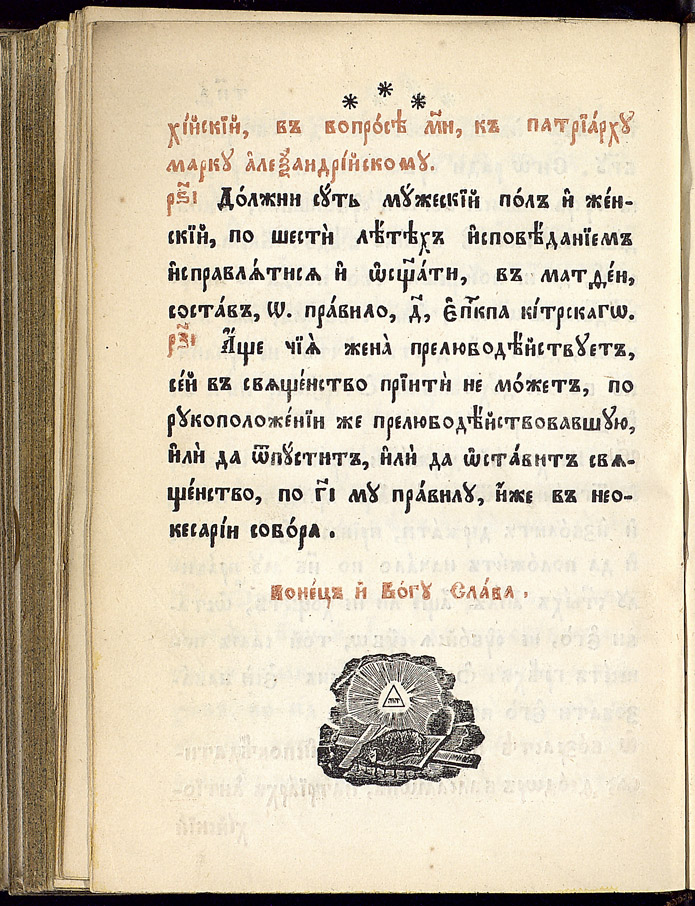 * * *
хі́йскій, въ вопро́сѣ м҃н, къ патріа́рху
марку а҆леѯандрі́йскому.
До́лжни сꙋ́ть мꙋ́жескій по́лъ и҆ же́н-
скій, по шестѝ лѣ́тѣхъ и҆сповѣ́данїемъ
и҆справлѧ́тисѧ и҆ ѡ҆сщ҃а́ти, въ мат ден,
соста́въ, ѡ. пра́вило, д҃, є҆п҇кпа кі́трскагѡ.
А҆́ще чїѧ̀ жена̀ прелюбодѣ́йствуетъ,
се́й въ свѧще́нство прїитѝ не мо́жетъ, по
рукоположе́нїи же прелюбодѣ́йствовавшую,
и҆лѝ да ѿпу́ститъ, и҆лѝ да ѡ҆ста́витъ свѧ-
ще́нство, по г҃і му пра́вилу, и҆́же въ нео-
кесарі́и собо́ра.
Коне́цъ и҆ Бо́гу Сла́ва.